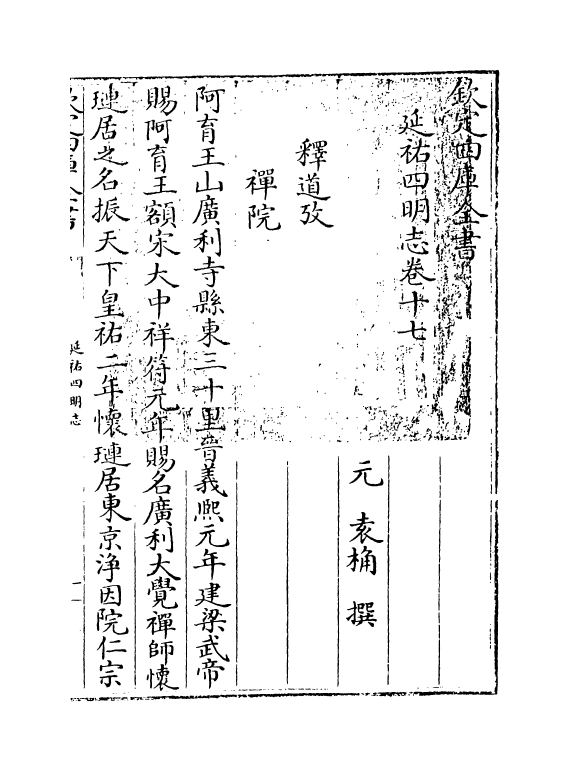 欽定四庫全書
延祐四明志卷十七
元 袁桷 撰
釋道攷
禪院
阿育王山廣利寺縣東三十里晉義熙元年建梁武帝
賜阿育王額宋大中祥符元年賜名廣利大覺禪師懷
璉居之名振天下皇祐二年懷璉居東京淨因院仁宗
欽定四庫全書
延祐四明志
一